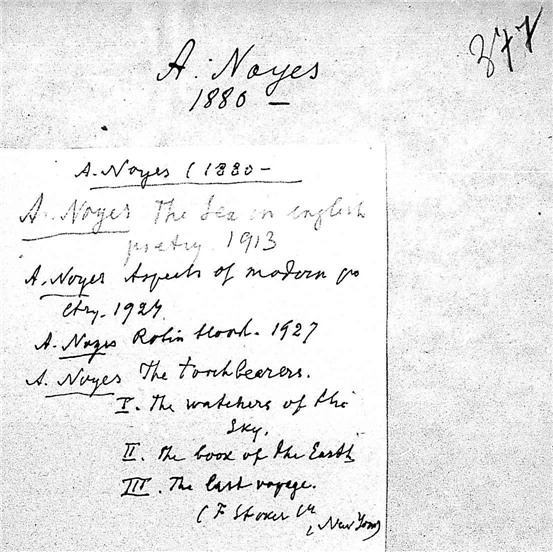 377
A. Noyes
1880 —
A. Noyes (1880 —
A. Noyes The Sea in english
poetry. 1913
A. Noyes Aspects of modern po
etry. 1924
A. Noyes Robin Hood. 1927
A. Noyes The torchbearers.
I. The watchers of the
Sky.
II. The book of the Earth
III. The last voyage.
(F Stokes
New York)